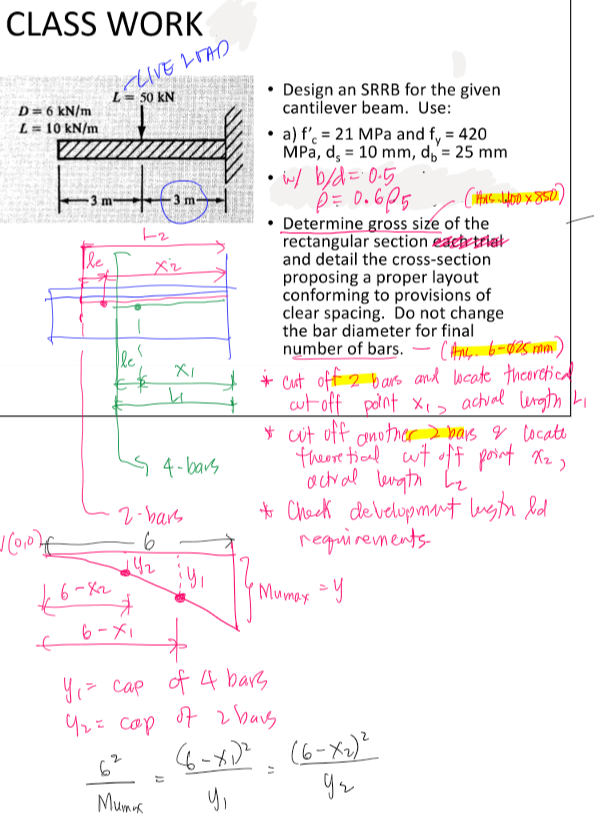 CLASS WORK
LIVE LOAD
L = 50 kN
D = 6 kN/m
L = 10 kN/m
3 m
3 m
• Design an SRRB for the given
cantilever beam. Use:
• a) f'c = 21 MPa and fy = 420
MPa, ds = 10 mm, db = 25 mm
• w/ b/d = 0.5
ρ = 0.6ρ5
(Ans. 400 x 850)
• Determine gross size of the
rectangular section each trial
and detail the cross-section
proposing a proper layout
conforming to provisions of
clear spacing. Do not change
the bar diameter for final
number of bars. — (Ans. 6-Ø25 mm)
* cut off 2 bars and locate theoretical
cut-off point x1, actual length L1
* cut off another 2 bars & locate
theoretical cut off point x2,
actual length L2
* Check development length ld
requirements
L2
le
x2
le
x1
L1
4-bars
2-bars
(0,0)
6
y2
y1
Mumax = y
6-x2
6-x1
y1 = cap of 4 bars
y2 = cap of 2 bars
6²/Mumax = (6-x1)²/y1 = (6-x2)²/y2